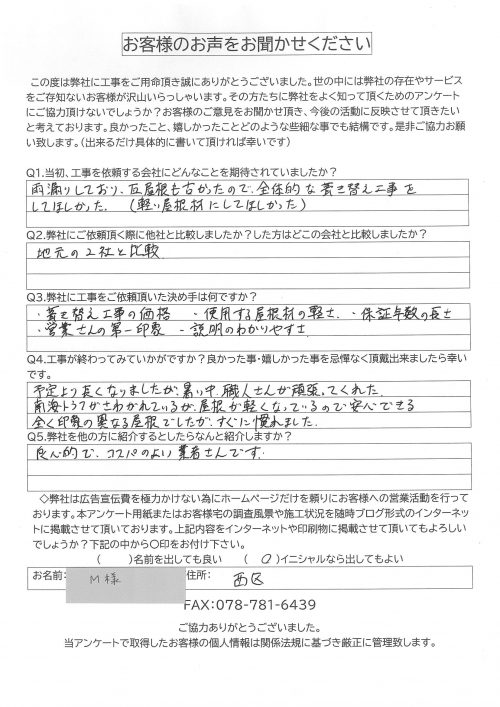 お客様のお声をお聞かせください
この度は弊社に工事をご用命頂き誠にありがとうございました。世の中には弊社の存在やサービス
をご存知ないお客様が沢山いらっしゃいます。その方たちに弊社をよく知って頂くためのアンケート
にご協力頂けないでしょうか？お客様のご意見をお聞かせ頂き、今後の活動に反映させて頂きたい
と考えております。良かったこと、嬉しかったことどのような些細な事でも結構です。是非ご協力お願
い致します。（出来るだけ具体的に書いて頂ければ幸いです）
Q1.当初、工事を依頼する会社にどんなことを期待されていましたか？
雨漏りしており、瓦屋根も古かったので、全体的な葺き替え工事を
してほしかった。（軽い屋根材にしてほしかった）
Q2.弊社にご依頼頂く際に他社と比較しましたか？した方はどこの会社と比較しましたか？
地元の2社と比較
Q3.弊社に工事をご依頼頂いた決め手は何ですか？
・葺き替え工事の価格 ・使用する屋根材の軽さ、・保証年数の長さ
・営業さんの第一印象 ・説明のわかりやすさ
Q4.工事が終わってみていかがですか？良かった事・嬉しかった事を忌憚なく頂戴出来ましたら幸い
です。
予定より長くなりましたが、暑い中、職人さんが頑張ってくれた。
南海トラフがさわがれているが、屋根が軽くなっているので安心できる
全く印象の異なる屋根でしたが、すぐに慣れました。
Q5.弊社を他の方に紹介するとしたらなんと紹介しますか？
良心的で、コスパのよい業者さんです。
◇弊社は広告宣伝費を極力かけない為にホームページだけを頼りにお客様への営業活動を行って
おります。本アンケート用紙またはお客様宅の調査風景や施工状況を随時ブログ形式のインターネッ
トに掲載させて頂いております。上記内容をインターネットや印刷物に掲載させて頂いてもよろしい
でしょうか？下記の中から〇印をお付け下さい。
（ ）名前を出しても良い （ ○ ）イニシャルなら出してもよい
お名前: M様 住所: 西区
FAX:078-781-6439
ご協力ありがとうございました。
当アンケートで取得したお客様の個人情報は関係法規に基づき厳正に管理致します。